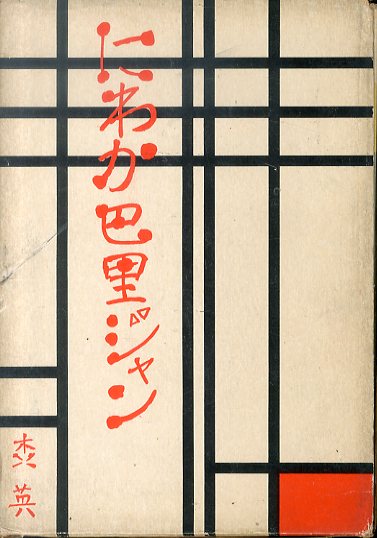 にわか巴里ジャン
森英